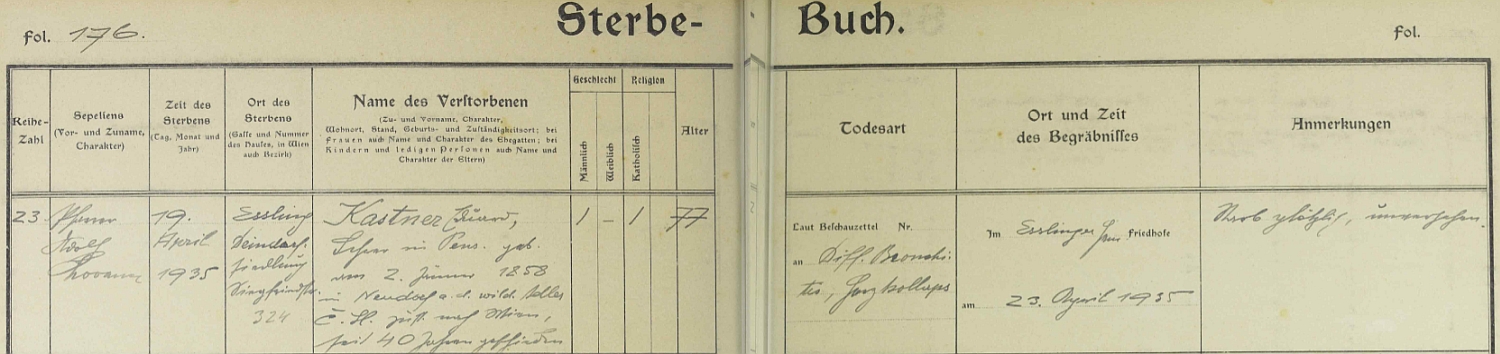 Fol. 176.
Sterbe-
Buch.
Fol.
Reihe-
Zahl
Sepeliens
(Vor- und Zuname,
Charakter)
Zeit des
Sterbens
(Tag, Monat und
Jahr)
Ort des
Sterbens
(Gasse und Nummer
des Hauses, in Wien
auch Bezirk)
Name des Verstorbenen
(Zu- und Vorname, Charakter,
Wohnort, Stand, Geburts- und Zuständigkeitsort; bei
Frauen auch Name und Charakter des Ehegatten; bei
Kindern und ledigen Personen auch Name und
Charakter der Eltern)
Geschlecht
Männlich
Weiblich
Religion
Katholisch
Alter
Todesart
Ort und Zeit
des Begräbnisses
Anmerkungen
23
Pfarrer
Adolf
19.
April
1935
Essling
siedlung
Siegfriedstr.
324
Kastner Eduard,
Lehrer in Pens. geb.
am 2. Jänner 1858
in Neudorf a. d. wild. Adler
Č. S. zust. nach Wien,
seit 40 Jahren geschieden
1
–
1
77
Laut Beschauzettel Nr.
an Diff. Bronchi-
tis, Herzkollaps
Im Esslinger Friedhofe
am 23. April 1935
Starb plötzlich, unversehen.